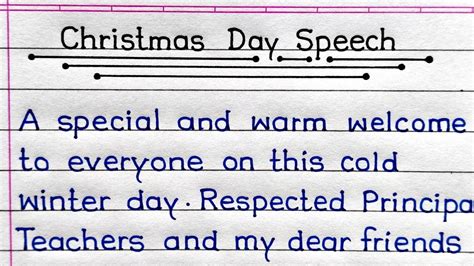 Christmas Day Speech
A special and warm welcome
to everyone on this cold
winter day. Respected Principa
Teachers and my dear friends